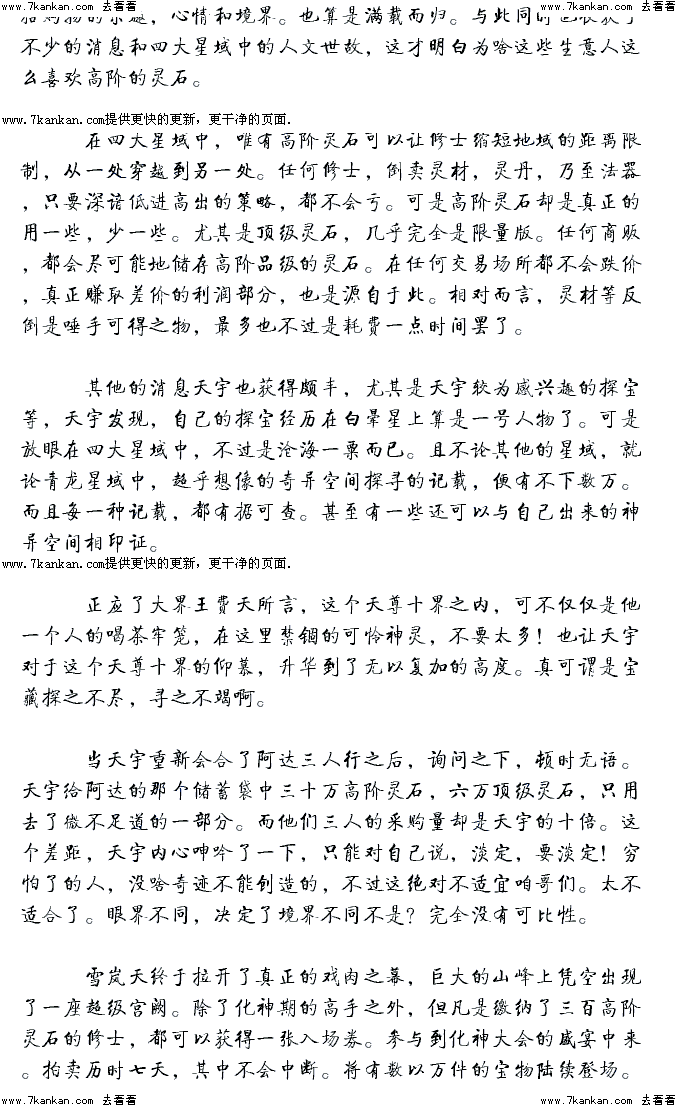 www.7kankan.com 去看看 www.7kankan.com 去看看
购物的乐趣，心情和境界。也算是满载而归。与此同时也收获了
不少的消息和四大星域中的人文世故，这才明白为啥这些生意人这
么喜欢高阶的灵石。
www.7kankan.com提供更快的更新，更干净的页面.
在四大星域中，唯有高阶灵石可以让修士缩短地域的距离限
制，从一处穿越到另一处。任何修士，倒卖灵材，灵丹，乃至法器
，只要深谙低进高出的策略，都不会亏。可是高阶灵石却是真正的
用一些，少一些。尤其是顶级灵石，几乎完全是限量版。任何商贩
，都会尽可能地储存高阶品级的灵石。在任何交易场所都不会跌价
，真正赚取差价的利润部分，也是源自于此。相对而言，灵材等反
倒是唾手可得之物，最多也不过是耗费一点时间罢了。
其他的消息天宇也获得颇丰，尤其是天宇较为感兴趣的探宝
等，天宇发现，自己的探宝经历在白晕星上算是一号人物了。可是
放眼在四大星域中，不过是沧海一票而已。且不论其他的星域，就
论青龙星域中，超乎想像的奇异空间探寻的记载，便有不下数万。
而且每一种记载，都有据可查。甚至有一些还可以与自己出来的神
异空间相印证。
www.7kankan.com提供更快的更新，更干净的页面.
正应了大界王费天所言，这个天尊十界之内，可不仅仅是他
一个人的喝茶牢笼，在这里禁锢的可怜神灵，不要太多！也让天宇
对于这个天尊十界的仰慕，升华到了无以复加的高度。真可谓是宝
藏探之不尽，寻之不竭啊。
当天宇重新会合了阿达三人行之后，询问之下，顿时无语。
天宇给阿达的那个储蓄袋中三十万高阶灵石，六万顶级灵石，只用
去了微不足道的一部分。而他们三人的采购量却是天宇的十倍。这
个差距，天宇内心呻吟了一下，只能对自己说，淡定，要淡定！穷
怕了的人，没啥奇迹不能创造的，不过这绝对不适宜咱哥们。太不
适合了。眼界不同，决定了境界不同不是？完全没有可比性。
雪岚天终于拉开了真正的戏肉之幕，巨大的山峰上凭空出现
了一座超级宫阙。除了化神期的高手之外，但凡是缴纳了三百高阶
灵石的修士，都可以获得一张入场券。参与到化神大会的盛宴中来
。拍卖历时七天，其中不会中断。将有数以万件的宝物陆续登场。
www.7kankan.com 去看看 www.7kankan.com 去看看